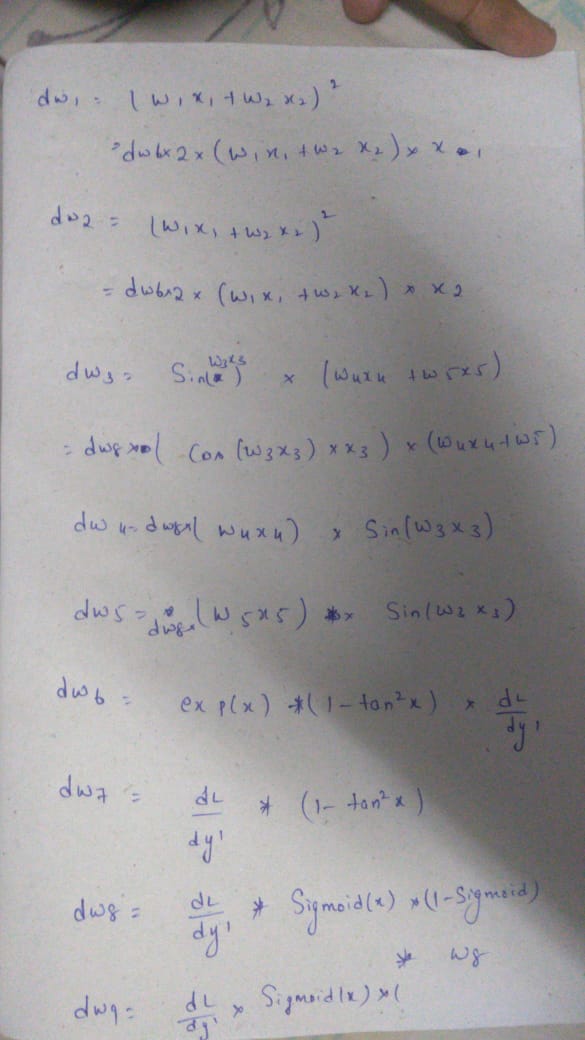 dw1 = (w1x1 + w2x2)²
= dw6×2×(w1x1 + w2x2) × x1
dw2 = (w1x1 + w2x2)²
= dw6×2 × (w1x1 + w2x2) × x2
dw3 = Sin(w3x3) × (w4x4 + w5x5)
= dw8 × ( Cos (w3x3) × x3 ) × (w4x4 + w5)
dw4 = dw8×( w4x4) × Sin(w3x3)
dw5 = dw8×(w5x5) × Sin(w3x3)
dw6 = exp(x) *(1 - tan²x) × dL/dy'
dw7 = dL/dy' * (1- tan²x)
dw8 = dL/dy' * Sigmoid(x) *(1-Sigmoid)
* w8
dw9 = dL/dy' × Sigmoid(x) *(